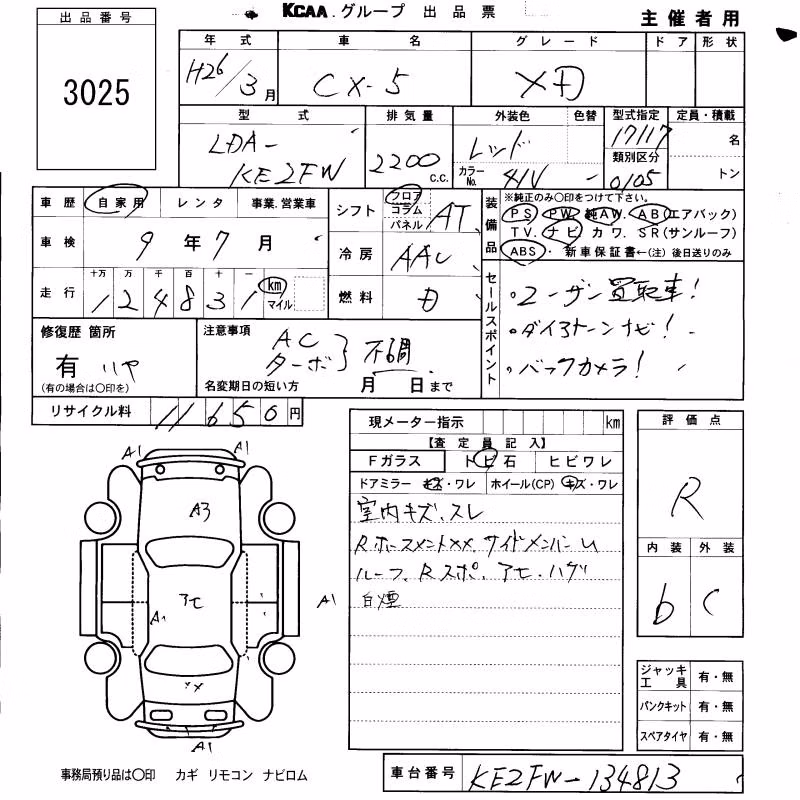 KCAA.グループ 出品票
主催者用
出品番号
3025
年式 車名 グレード ドア 形状
H26/3月 CX-5 XD
型式 排気量 外装色 色替 型式指定 定員・積載
LDA-KE2FW 2200 C.C. レッド 17117 名
カラーNo. 41V 類別区分 0105 トン
車歴 自家用 レンタ 事業.営業車
車検 9年7月
走行 十万 万 千 百 十 一
124831 km マイル
シフト フロア コラム パネル AT
冷房 AAC
燃料 D
装備品 ※純正のみ〇印をつけて下さい。
PS PW 純AW. AB(エアバック)
TV. ナビ カワ. SR(サンルーフ)
ABS・ 新車保証書←(注) 後日送りのみ
セールスポイント
・ユーザー買取車!
・ダイアトーンナビ!
・バックカメラ!
修復歴 箇所
有
(有の場合は〇印を)
注意事項
AC
ターボ } 不調
名変期日の短い方 月 日まで
リサイクル料 11650円
現メーター指示 km
【査定員記入】
Fガラス トビ石 ヒビワレ
ドアミラー キズ・ワレ ホイール(CP) キズ・ワレ
室内キズ、スレ
Rホースメント××、サイドメンバーU
ルーフ、Rスポ、アセ・ハゲ
白煙
評価点
R
内装 外装
b C
A1 A1
A3
アセ
A1
A1
××
A1
ジャッキ工具 有・無
パンクキット 有・無
スペアタイヤ 有・無
事務局預り品は〇印 カギ リモコン ナビロム
車台番号 KE2FW-134813